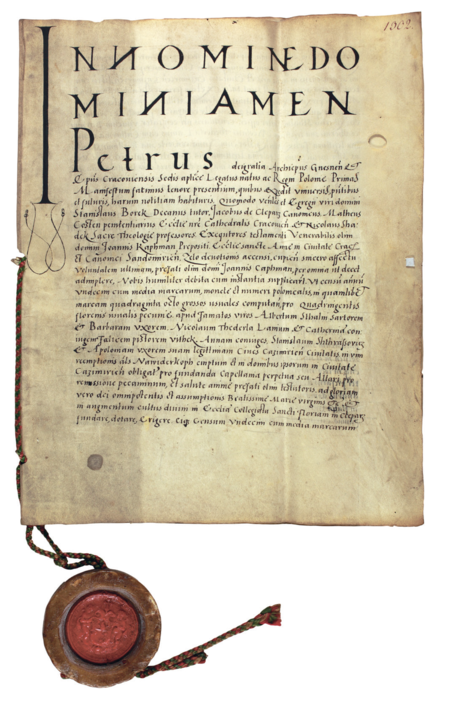 1502
INNOMINEDO
MINIAMEN
Petrus deigratia Archiepus Gnesnen Et
Epus Cracoviensis Sedis aplice Legatus natus ac Regni Polonie Primas
Manifestum facimus tenore presentium, quibus Expedit universis, presentibus
et futuris, harum notitiam habituris, Quomodo venerabiles Egregii viri domini
Stanislaus Borek Decanus tutor, Jacobus de Clepar Canonicus, Matheus
penitentiarius Ecclesie Cathedralis Cracovien Et Nicolaus Sha
dek Sacre Theologie professores Executores testamenti Venerabilis olim
domini Joannis Kaphman Prepositi Ecclesie sancte Anne in Civitate
Et Canonici Sandomirien. Zelo devotionis accensi, cupien sincero affectu
Voluntatem ultimam, prefati olim domini Joannis Caphman, per omnia ut decet
adimplere, Nobis humiliter debita cum instantia supplicarunt Ut censu annui
undecem cum media marcarum, monete Et numeri polonicalis, in quamlibet
marcam quadraginta octo grossos usuales computan, pro Quadringentis
florenis usualis pecunie, apud famatos viros Albertum Sthalm sartorem
et Barbaram uxorem, Nicolaum Thederla Lanium Et Catherinam con
iugem Jalteen pistorem vilhek Annam coniuges Stanislaum
Et Apoloniam uxorem suam legittimam Cives Casimirien Civitatis in vim
reemptionis als Nawiderkoph emptum et in domibus ipsorum in Civitate
Cazimirien obligat pro fundanda Capellania perpetua seu Altari pro
remissione peccaminum, et salute anime prefati olim testatoris ad gloriam
vero dei omnipotentis Et assumptionis Beatissime Marie virginis
in augmentum cultus divini in Ecclesia Collegiata Sancti Floriani in Clepar
fundare, dotare, Erigere Censum Undecem cum media marcarum